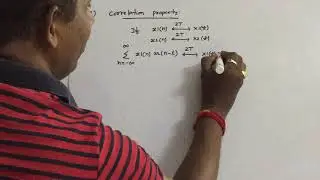 ) Correlation property:
If x1(n) ⟷ᶻᵀ x1(z)
x2(n) ⟷ᶻᵀ x2(z)
∞ ∑ n=-∞ x1(n) x2(n-l) ⟷ᶻᵀ x1(z)